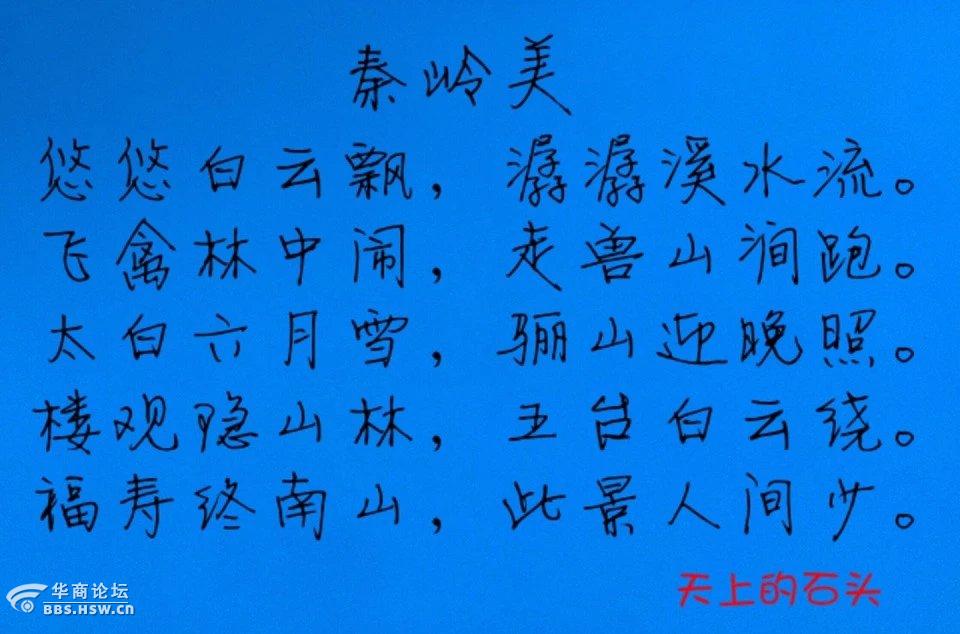 秦岭美
悠悠白云飘，潺潺溪水流。
飞禽林中闹，走兽山涧跑。
太白六月雪，骊山迎晚照。
楼观隐山林，五台白云绕。
福寿终南山，此景人间少。
天上的石头
华商论坛
BBS.HSW.CN